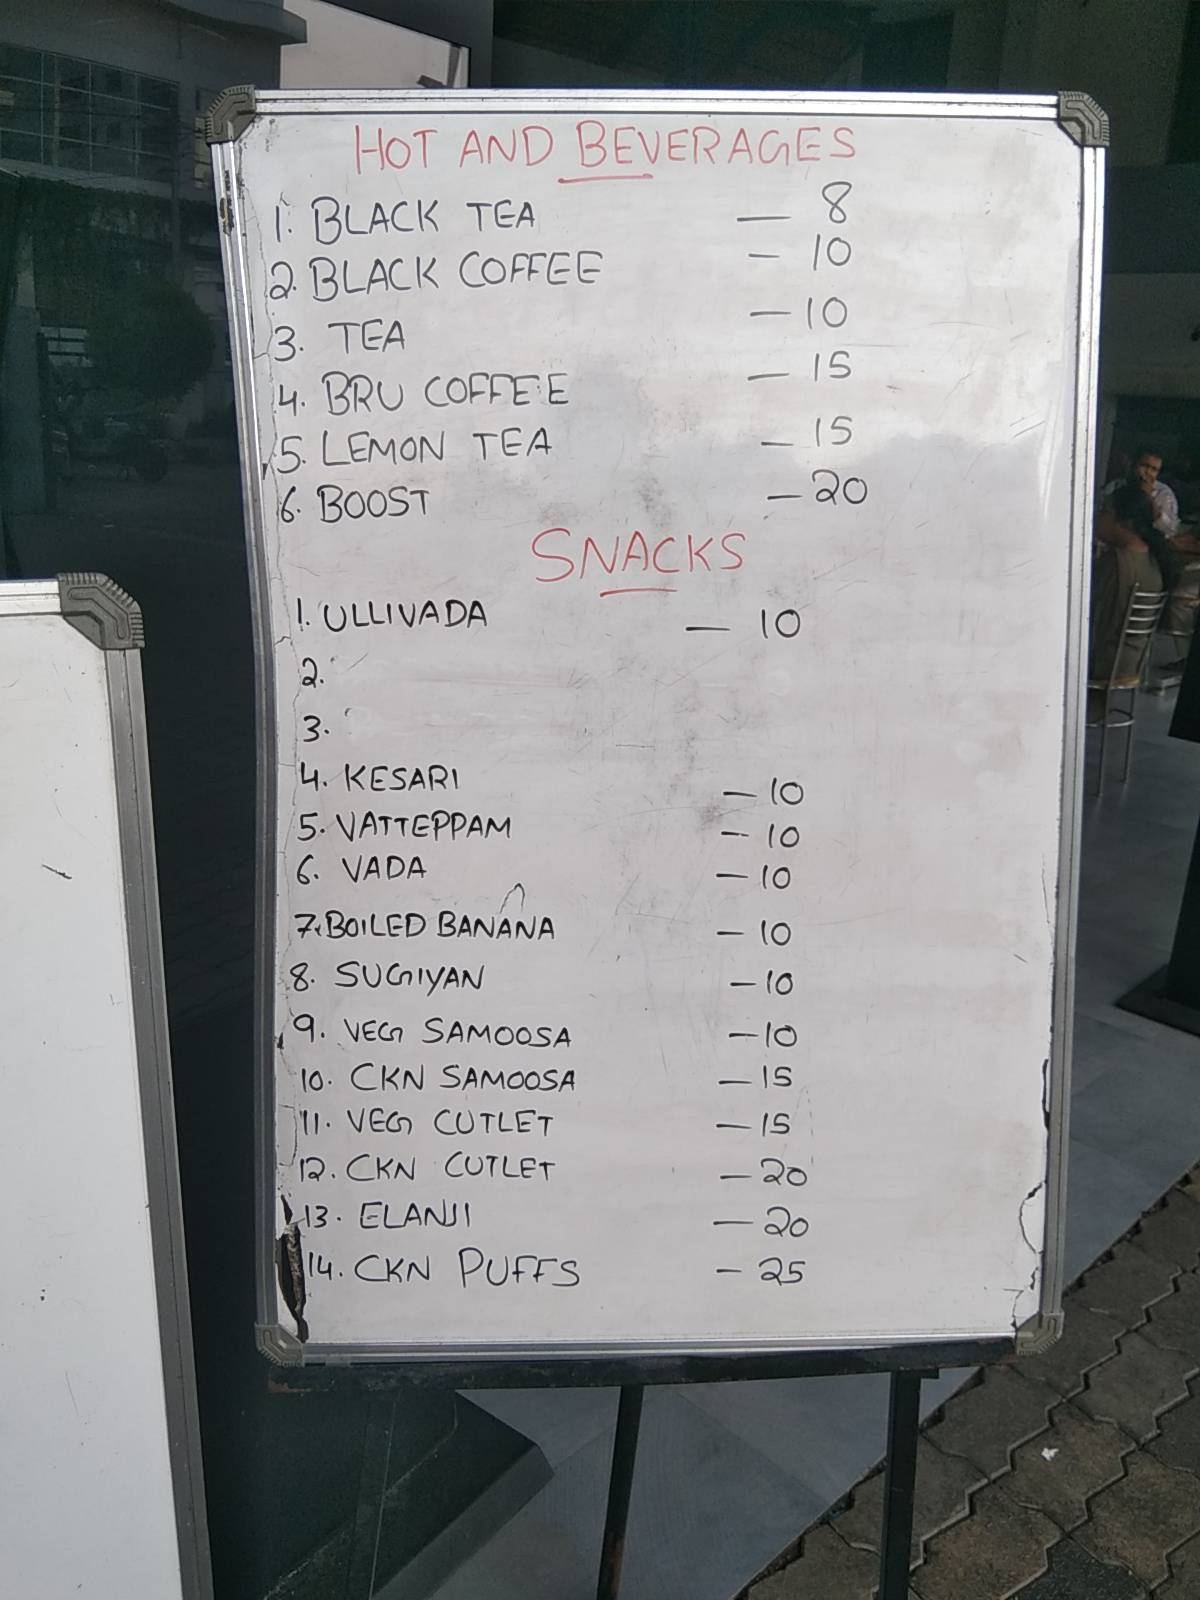 HOT AND BEVERAGES
1. BLACK TEA — 8
2. BLACK COFFEE — 10
3. TEA — 10
4. BRU COFFEE — 15
5. LEMON TEA — 15
6. BOOST — 20
SNACKS
1. ULLIVADA — 10
2.
3.
4. KESARI — 10
5. VATTEPPAM — 10
6. VADA — 10
7. BOILED BANANA — 10
8. SUGIYAN — 10
9. VEG SAMOOSA — 10
10. CKN SAMOOSA — 15
11. VEG CUTLET — 15
12. CKN CUTLET — 20
13. ELANJI — 20
14. CKN PUFFS — 25